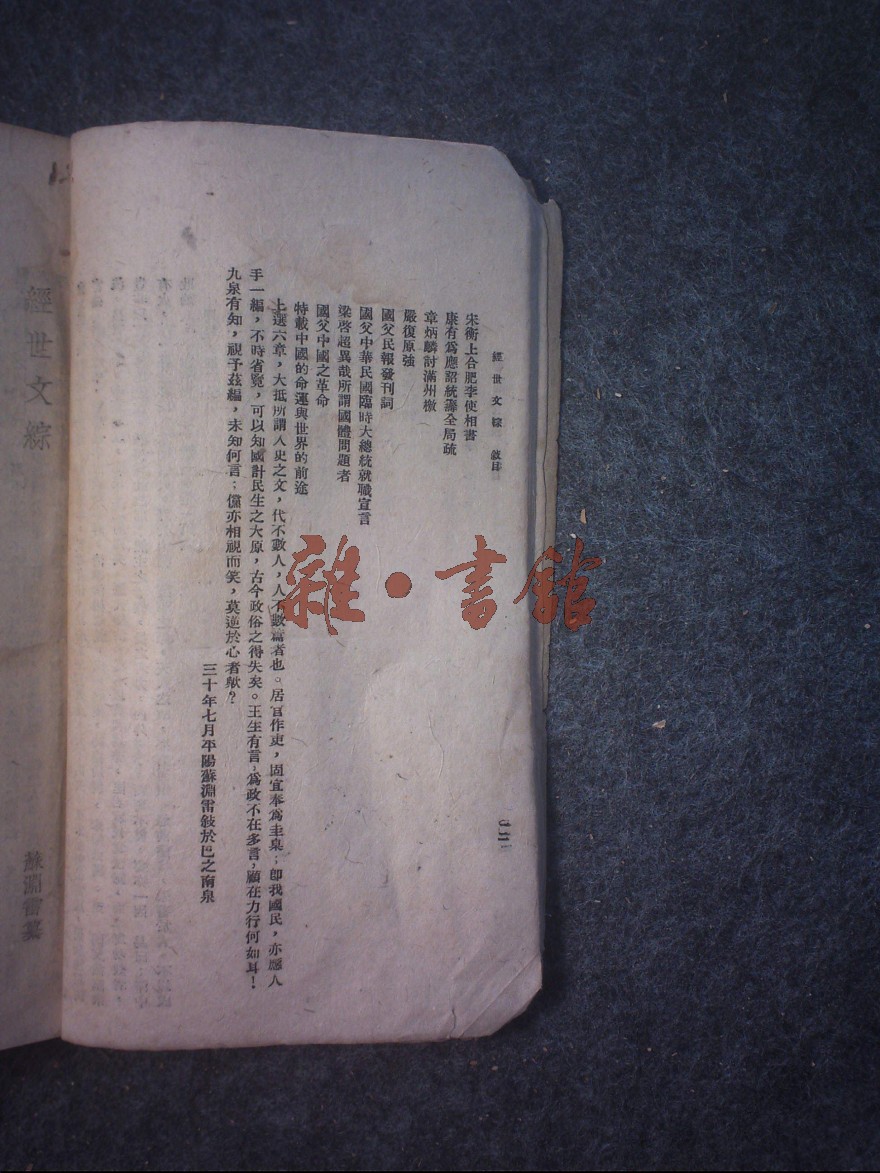 經世文綜 敍目
宋衡上合肥李使相書
康有爲應詔統籌全局疏
章炳麟討滿州檄
嚴復原強
國父民報發刊詞
國父中華民國臨時大總統就職宣言
梁啓超異哉所謂國體問題者
國父中國之革命
特載中國的命運與世界的前途
上選六章，大抵所謂入史之文，代不數人，人不數篇者也。居官作吏，固宜奉爲圭臬；卽我國民，亦應人
手一編，不時省覽，可以知國計民生之大原，古今政俗之得失矣。王生有言，爲政不在多言，顧在力行何如耳！
九泉有知，視予茲編，未知何言；儻亦相視而笑，莫逆於心者歟？
三十年七月平陽蘇淵雷敍於巴之南泉
經世文綜
蘇淵雷纂
雜·書館